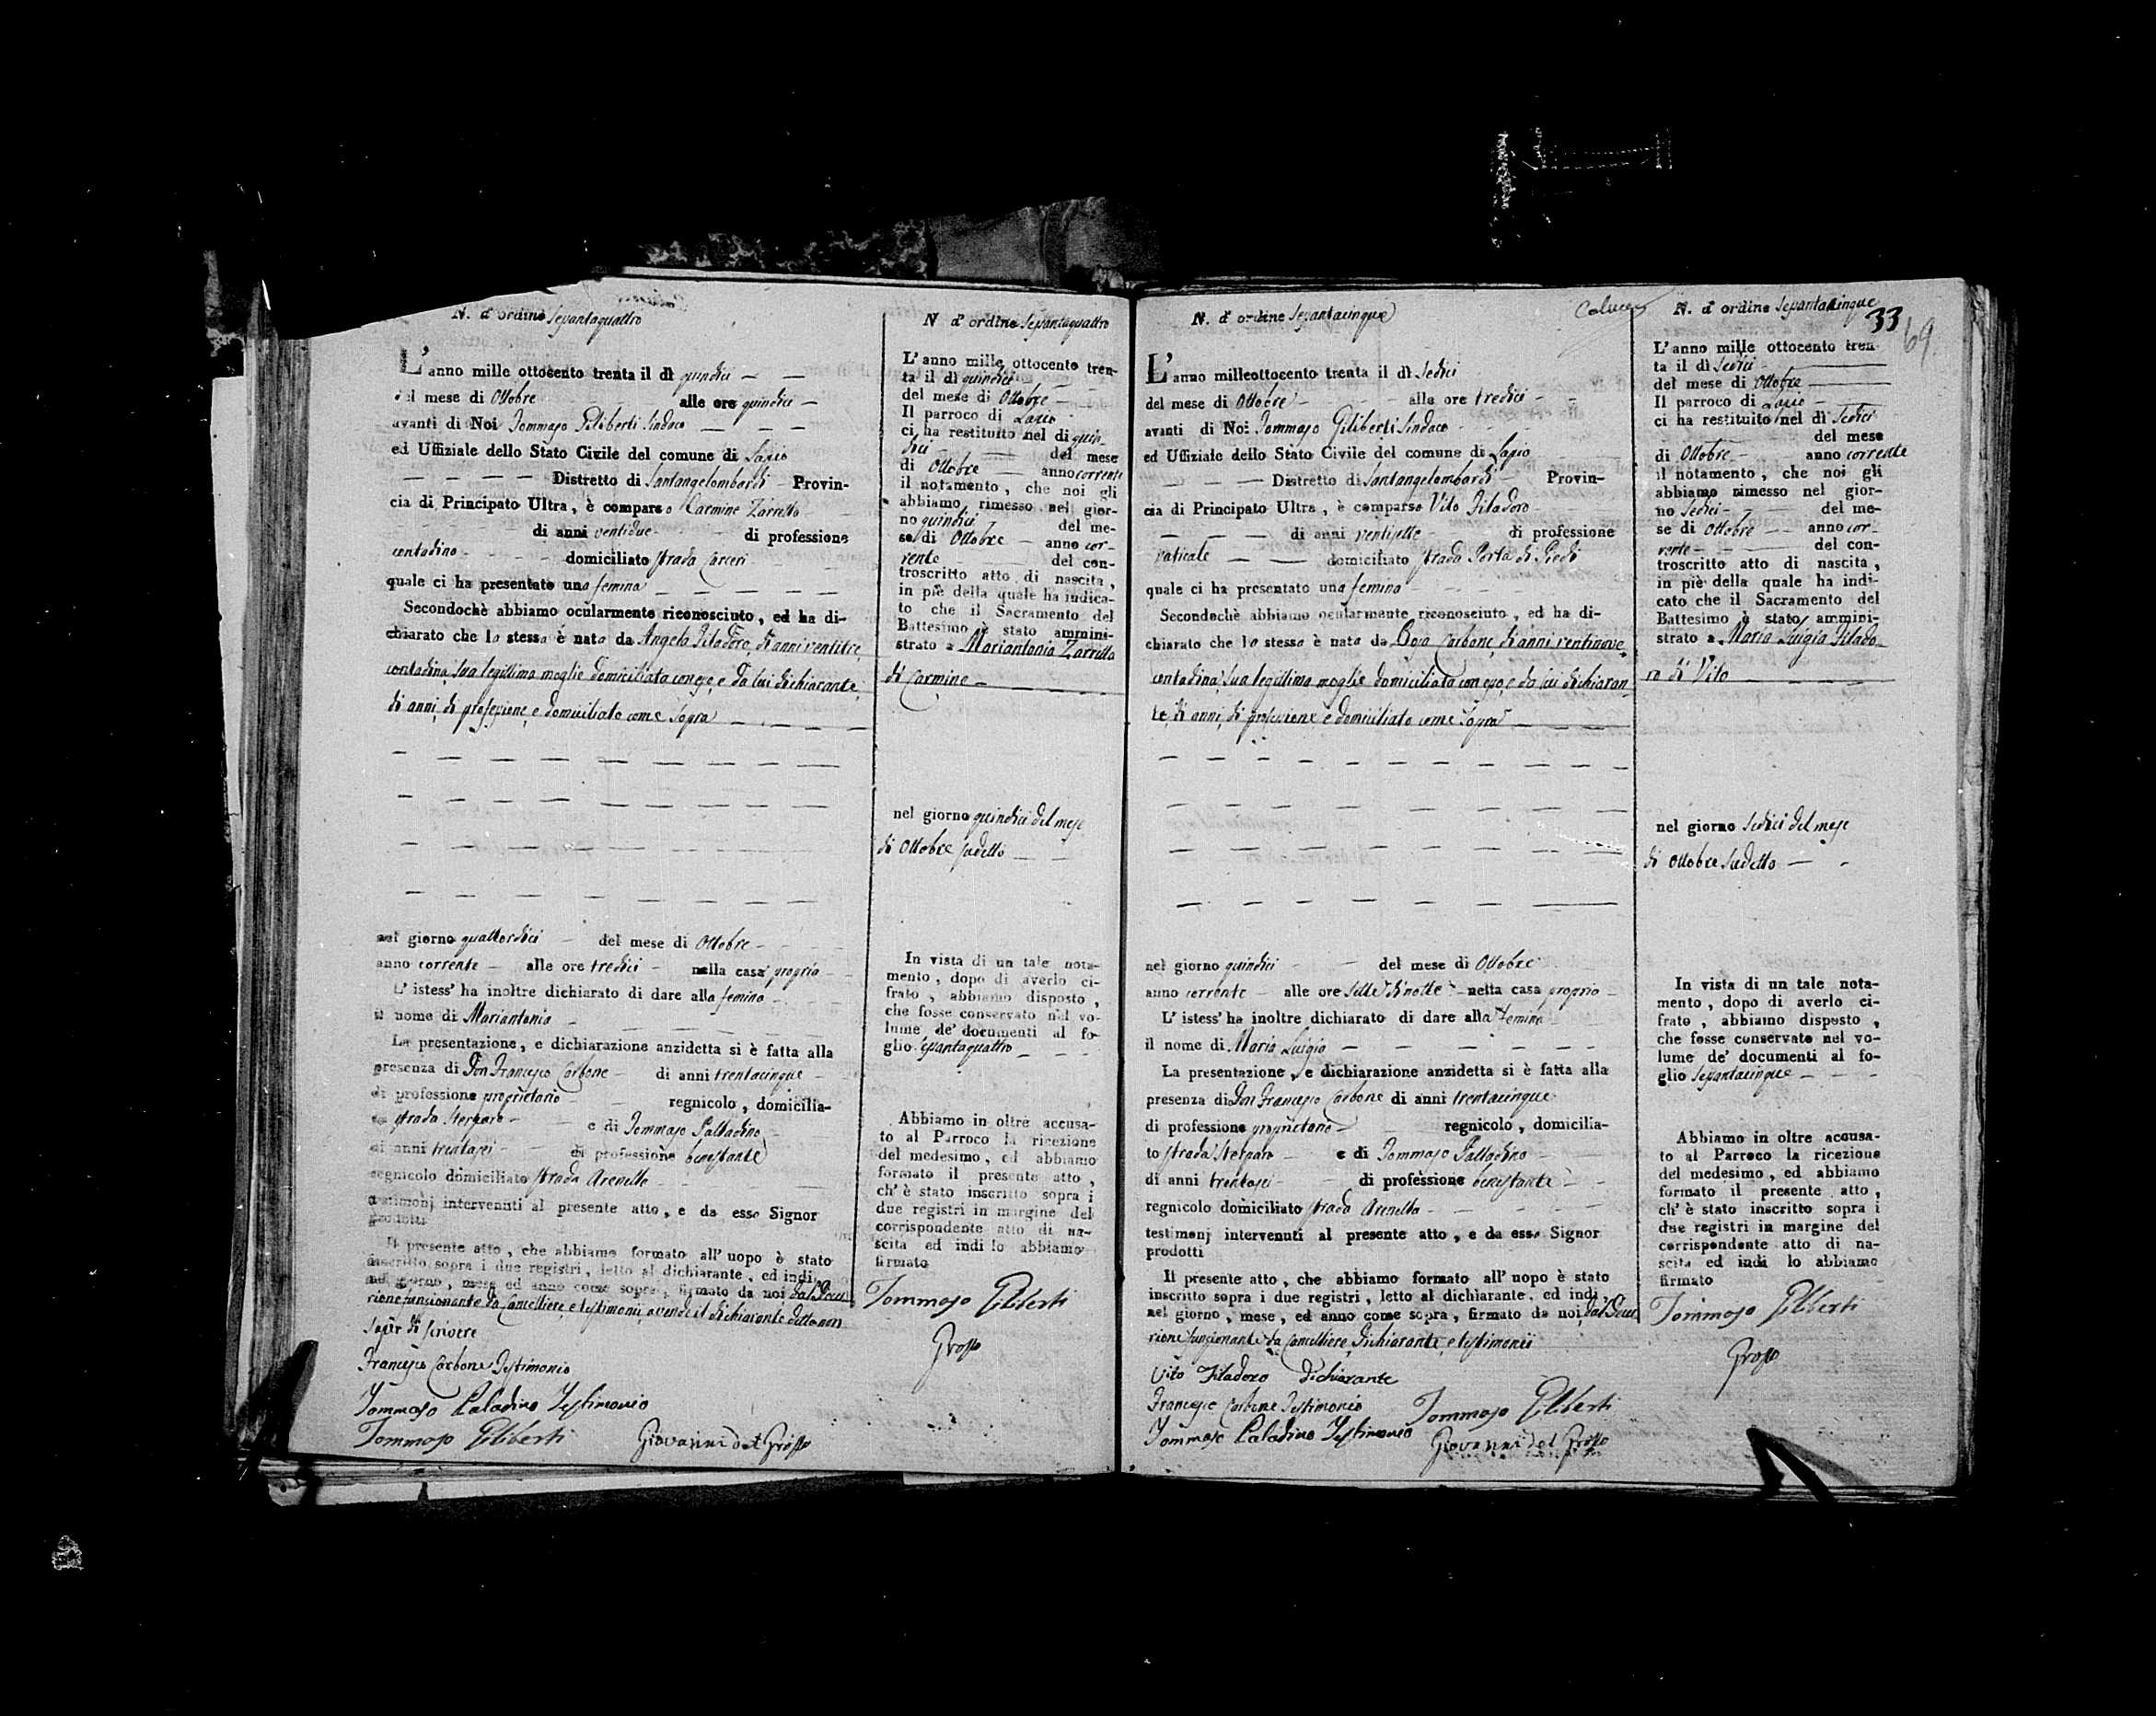 N. d'ordine Sessantaquattro
L'anno mille ottocento trenta il dì quindici
del mese di Ottobre alle ore quindici
avanti di Noi Tommaso Giliberti Sindaco
ed Uffiziale dello Stato Civile del comune di Lapio
Distretto di Santangelombardi Provin-
cia di Principato Ultra, è comparso Carmine Zarrella
di anni ventidue di professione
contadino domiciliato strada Carceri
quale ci ha presentato una femina
Secondochè abbiamo ocularmente riconosciuto, ed ha di-
chiarato che la stessa è nata da Angela Filadoro, di anni ventitre,
contadina, sua legittima moglie domiciliata con esso, e da lui dichiarante,
di anni, di professione, e domiciliato come sopra
nel giorno quattordici del mese di Ottobre
anno corrente alle ore tredici nella casa propria
L'istess' ha inoltre dichiarato di dare alla femina
il nome di Mariantonia
La presentazione, e dichiarazione anzidetta si è fatta alla
presenza di Don Francesco Carbone di anni trentacinque
di professione proprietario regnicolo, domicilia-
to strada Sterparo e di Tommaso Palladino
di anni trentasei di professione benestante
regnicolo domiciliato strada Arenella
testimonj intervenuti al presente atto, e da esso Signor
prodotti
Il presente atto, che abbiamo formato all' uopo è stato
inscritto sopra i due registri, letto al dichiarante, ed indi,
nel giorno, mese ed anno come sopra, firmato da noi, dal Decu
rione funzionante da Cancelliere, e testimonii, avendo il dichiarante detto non
saper di scrivere
Francesco Carbone Testimonio
Tommaso Paladino Testimonio
Tommaso Giliberti Giovanni del Grosso
N d'ordine Sessantaquattro
L'anno mille ottocento tren-
ta il dì quindici
del mese di Ottobre
Il parroco di Lapio
ci ha restituito nel dì quin-
dici del mese
di Ottobre anno corrente
il notamento, che noi gli
abbiamo rimesso nel gior-
no quindici del me-
se di Ottobre anno cor-
rente del con-
troscritto atto di nascita,
in piè della quale ha indica-
to che il Sacramento del
Battesimo è stato ammini-
strato a Mariantonia Zarrella
di Carmine
nel giorno quindici del mese
di Ottobre sudetto
In vista di un tale nota-
mento, dopo di averlo ci-
frato, abbiamo disposto,
che fosse conservato nel vo-
lume de' documenti al fo-
glio sessantaquattro
Abbiamo in oltre accusa-
to al Parroco la ricezione
del medesimo, ed abbiamo
formato il presente atto,
ch' è stato inscritto sopra i
due registri in margine del
corrispondente atto di na-
scita ed indi lo abbiamo
firmato
Tommaso Giliberti
Grosso
N. d'ordine Sessantacinque
L'anno milleottocento trenta il dì Sedici
del mese di Ottobre alle ore tredici
avanti di Noi Tommaso Giliberti Sindaco
ed Uffiziale dello Stato Civile del comune di Lapio
Distretto di Santangelombardi Provin-
cia di Principato Ultra, è comparso Vito Filadoro
di anni ventisette di professione
vaticale domiciliato strada Porta di Piedi
quale ci ha presentato una femina
Secondochè abbiamo ocularmente riconosciuto, ed ha di-
chiarato che la stessa è nata da Carbone, di anni ventinove,
contadina, sua legittima moglie domiciliata con esso, e da lui dichiaran
te, di anni, di professione e domiciliato come sopra
nel giorno quindici del mese di Ottobre
anno corrente alle ore sette di notte nella casa propria
L'istess' ha inoltre dichiarato di dare alla femina
il nome di Maria Luigia
La presentazione, e dichiarazione anzidetta si è fatta alla
presenza di Don Francesco Carbone di anni trentacinque
di professione proprietario regnicolo, domicilia-
to strada Sterparo e di Tommaso Palladino
di anni trentasei di professione benestante
regnicolo domiciliato strada Arenella
testimonj intervenuti al presente atto, e da esso Signor
prodotti
Il presente atto, che abbiamo formato all' uopo è stato
inscritto sopra i due registri, letto al dichiarante, ed indi,
nel giorno, mese, ed anno come sopra, firmato da noi, dal Decu
rione funzionante da Cancelliere, dichiarante, e testimonii
Vito Filadoro Dichiarante
Francesco Carbone Testimonio Tommaso Giliberti
Tommaso Paladino Testimonio Giovanni del Grosso
N. d'ordine Sessantacinque
33
69
L'anno mille ottocento tren-
ta il dì Sedici
del mese di Ottobre
Il parroco di Lapio
ci ha restituito nel dì Sedici
del mese
di Ottobre anno corrente
il notamento, che noi gli
abbiamo rimesso nel gior-
no Sedici del me-
se di Ottobre anno cor-
rente del con-
troscritto atto di nascita,
in piè della quale ha indi-
cato che il Sacramento del
Battesimo è stato ammini-
strato a Maria Luigia Filado-
ro di Vito
nel giorno Sedici del mese
di Ottobre sudetto
In vista di un tale nota-
mento, dopo di averlo ci-
frato, abbiamo disposto,
che fosse conservato nel vo-
lume de' documenti al fo-
glio sessantacinque
Abbiamo in oltre accusa-
to al Parroco la ricezione
del medesimo, ed abbiamo
formato il presente atto,
ch' è stato inscritto sopra i
due registri in margine del
corrispondente atto di na-
scita ed indi lo abbiamo
firmato
Tommaso Giliberti
Grosso